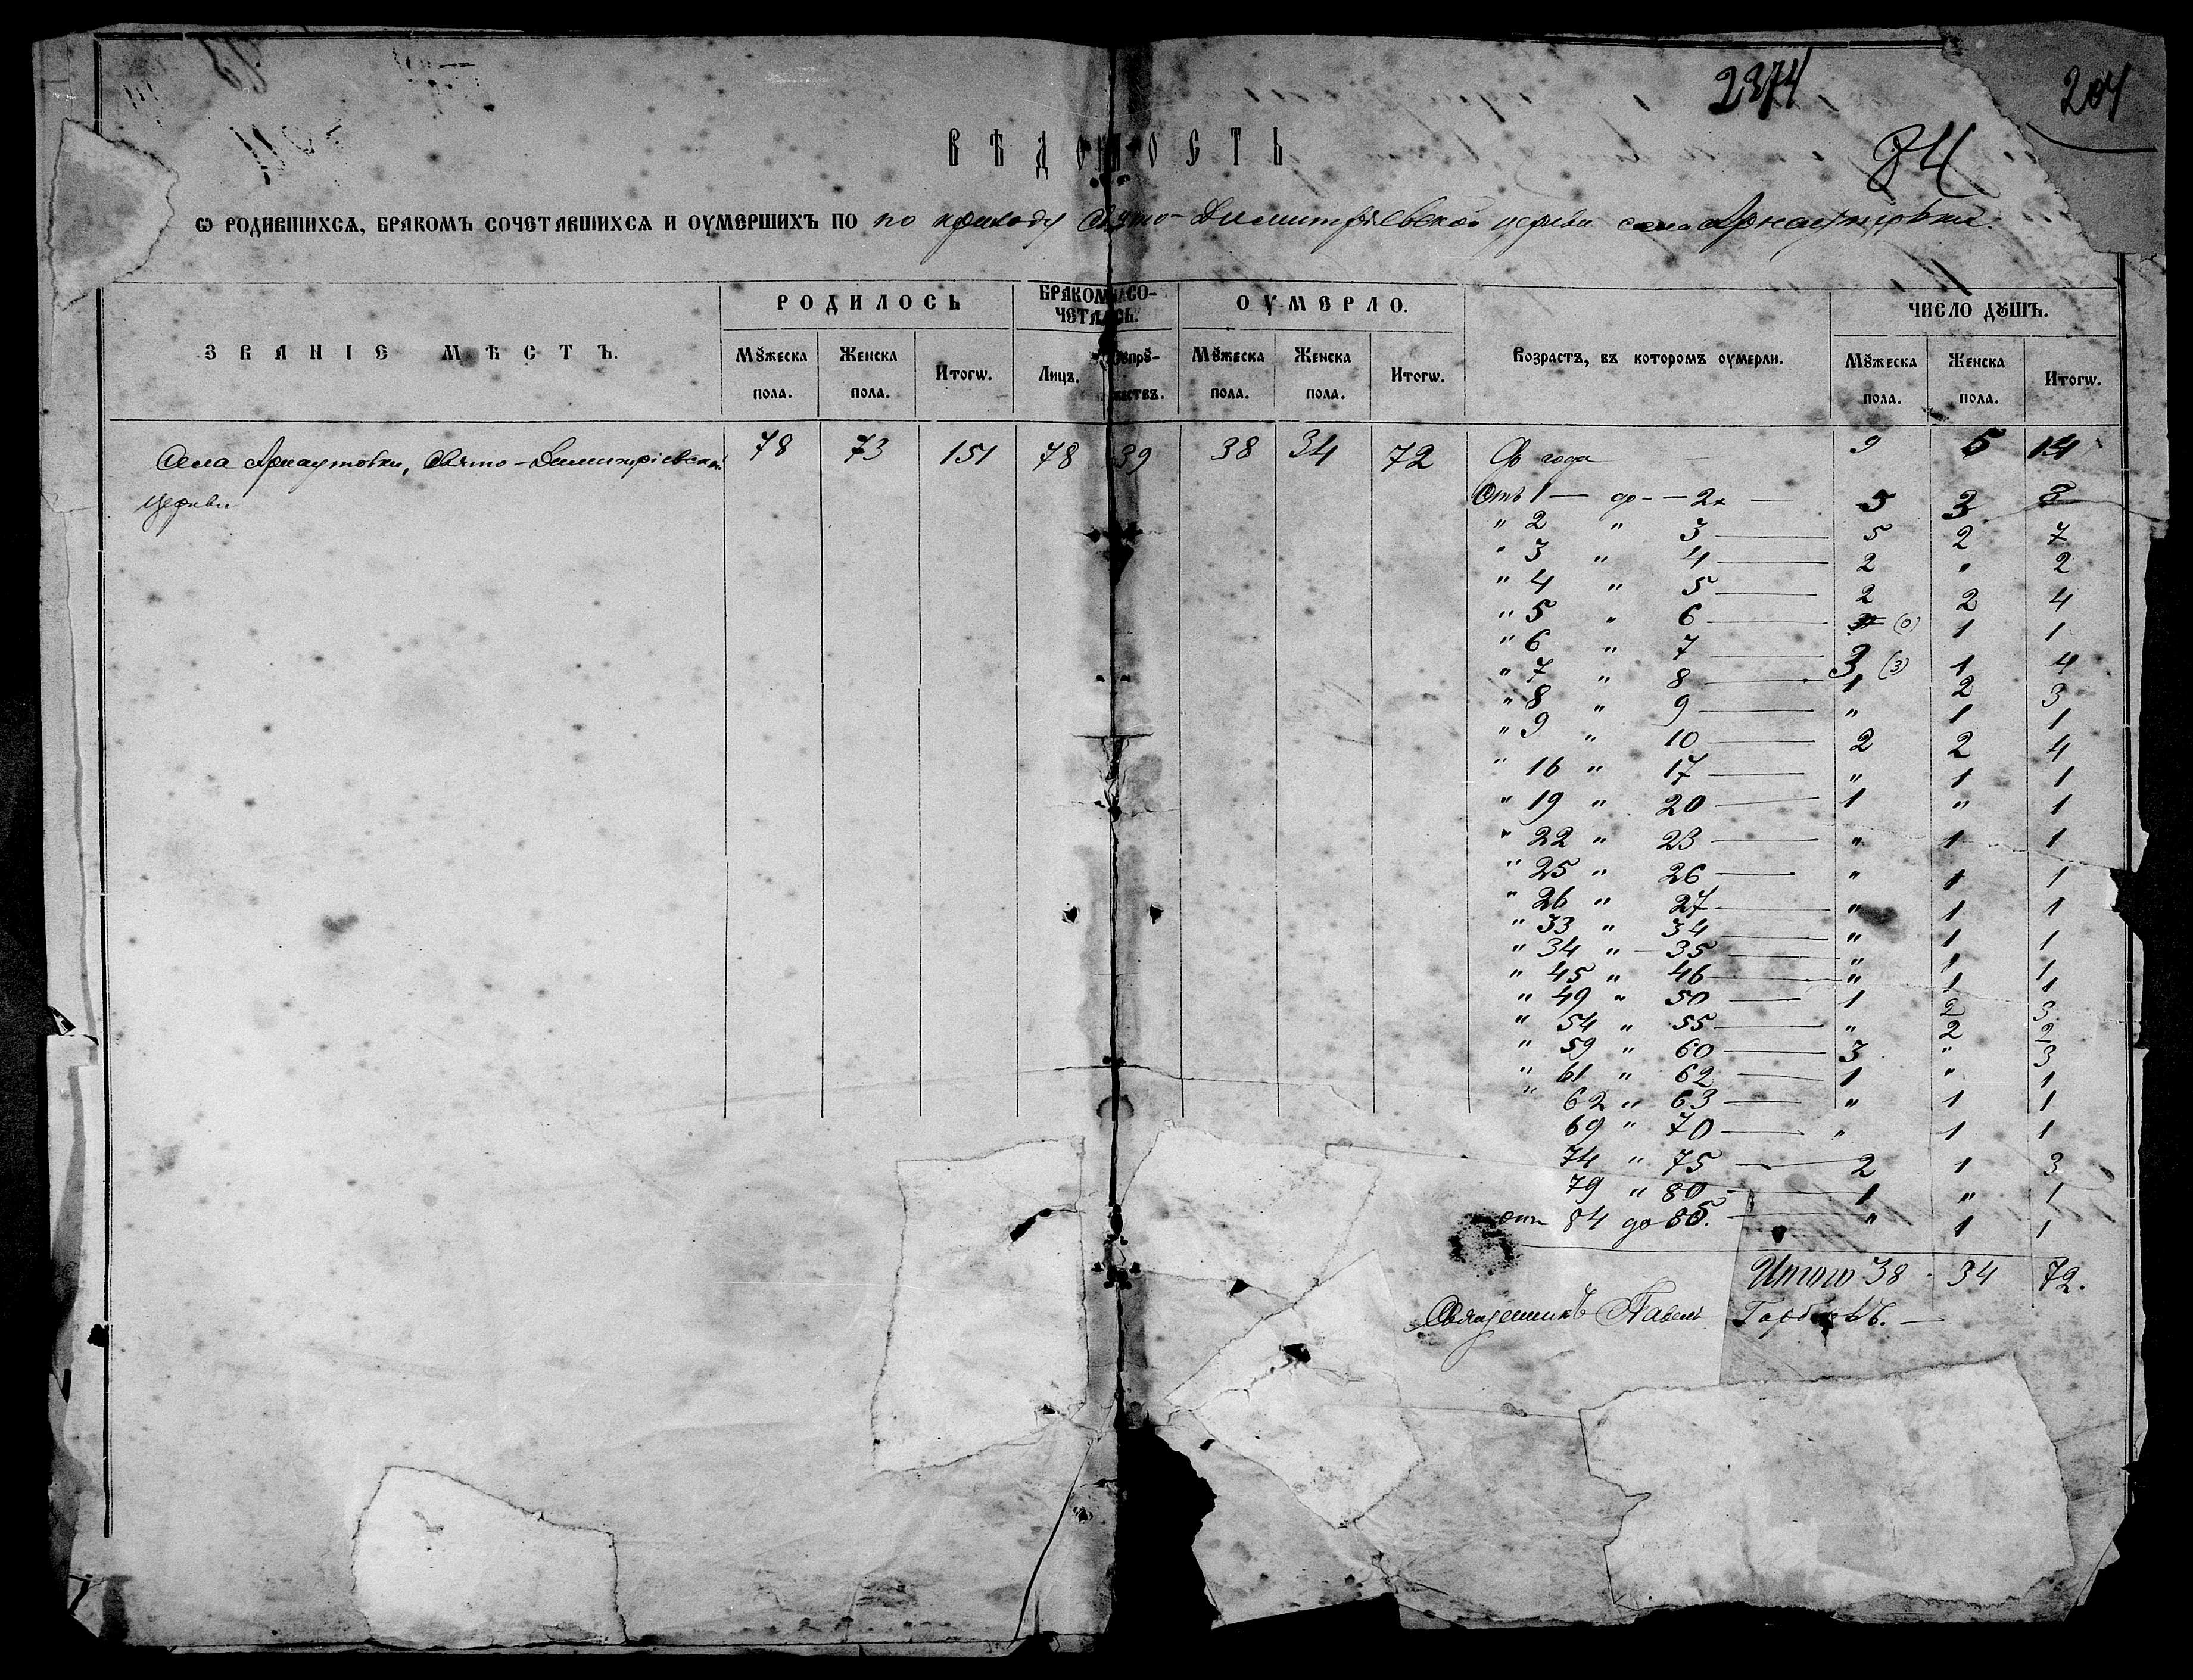 2374
204
84
ВѢДОМОСТЬ
Ѡ РОДИВШИХСѦ, БРАКОМЪ СОЧЕТАВШИХСѦ И ОУМЕРШИХЪ ПО по приходу Свято-Димитріевской церкви села Арнаутовки.
ЗВАНІЕ МѢСТЪ. РОДИЛОСЬ БРАКОМЪ СО- ОУМЕРЛО. Возрастъ, въ которомъ оумерли. ЧИСЛО ДꙋШЪ.
ЧЕТАЛОСЬ.
Мꙋжеска Женска Итогѡ. Лицъ. Сꙋпрꙋ- Мꙋжеска Женска Итогѡ. Мꙋжеска Женска Итогѡ.
пола. пола. жествъ. пола. пола. пола. пола.
Села Арнаутовки, Свято-Димитріевской 78 73 151 78 39 38 34 72 До года 9 5 14
церкви
Отъ 1 — до — 2х 5 3 8
" 2 " 3 5 2 7
" 3 " 4 2 " 2
" 4 " 5 2 2 4
" 5 " 6 (0) 1 1
" 6 " 7 3 (3) 1 4
" 7 " 8 1 2 3
" 8 " 9 " 1 1
" 9 " 10 2 2 4
" 16 " 17 " 1 1
" 19 " 20 1 " 1
" 22 " 23 " 1 1
" 25 " 26 " 1 1
" 26 " 27 " 1 1
" 33 " 34 " 1 1
" 34 " 35 " 1 1
" 45 " 46 " 1 1
" 49 " 50 1 2 3
" 54 " 55 " 2 2
" 59 " 60 3 " 3
" 61 " 62 1 " 1
" 62 " 63 " 1 1
69 " 70 " 1 1
74 " 75 2 1 3
79 " 80 1 " 1
отъ 84 до 85. " 1 1
Итого 38 34 72.
Священникъ Павелъ